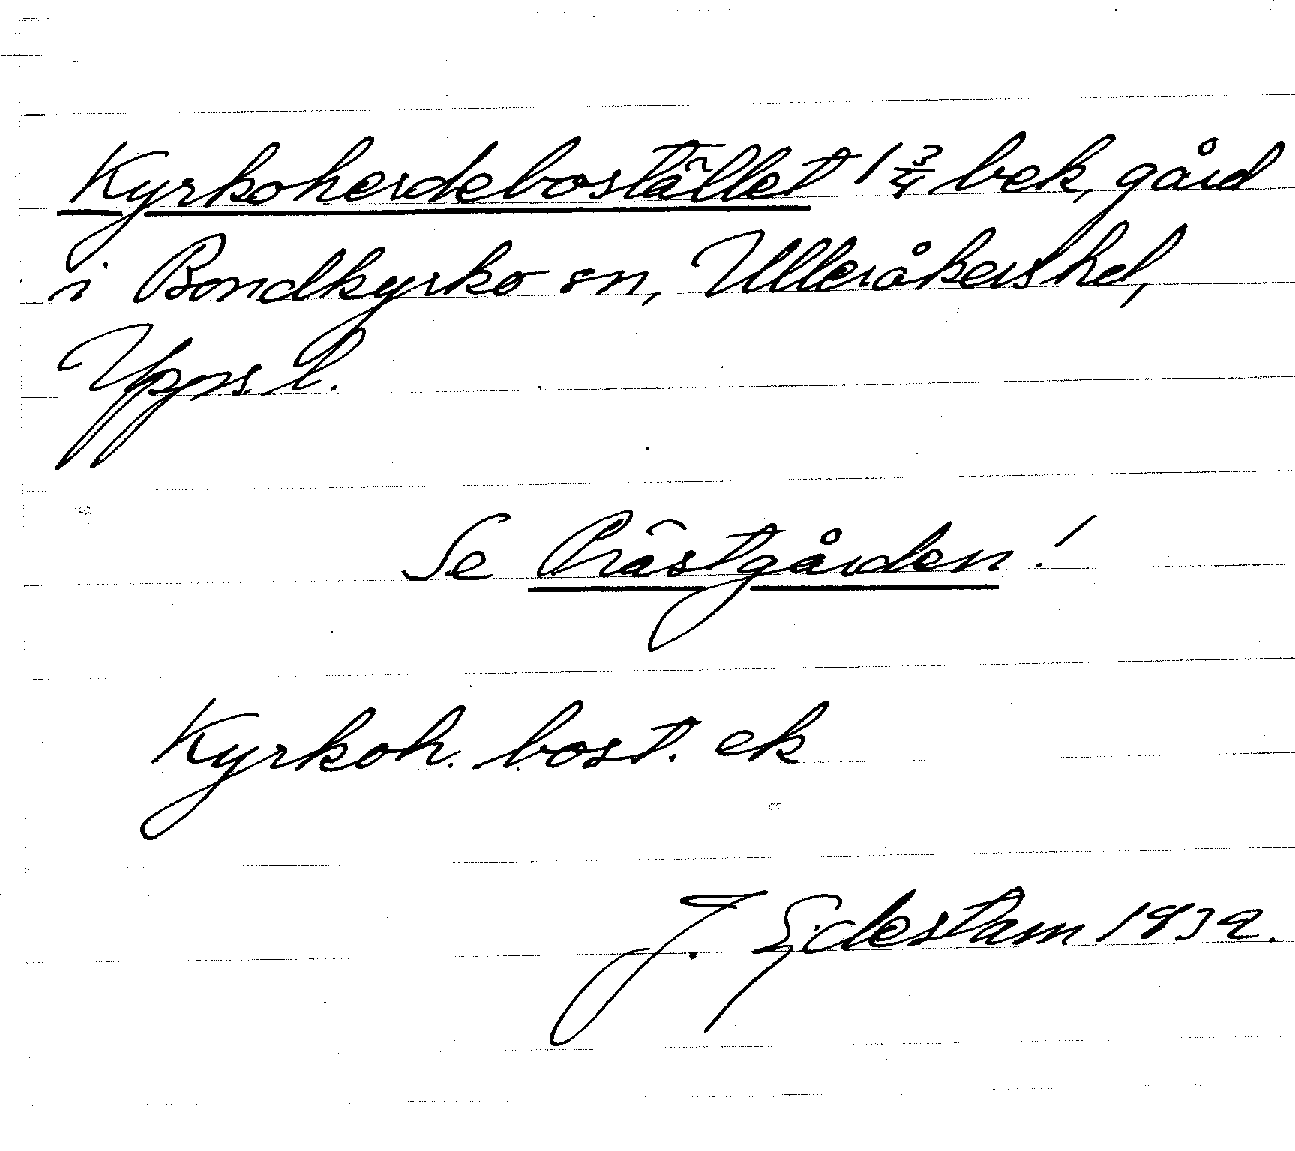 Kyrkoherdebostället 1 3/4 bek, gård
i Bondkyrko sn, Ulleråkers hd,
Upps. l.
Se Prästgården!
Kyrkoh. bost. ek
J. Edestam 1932.